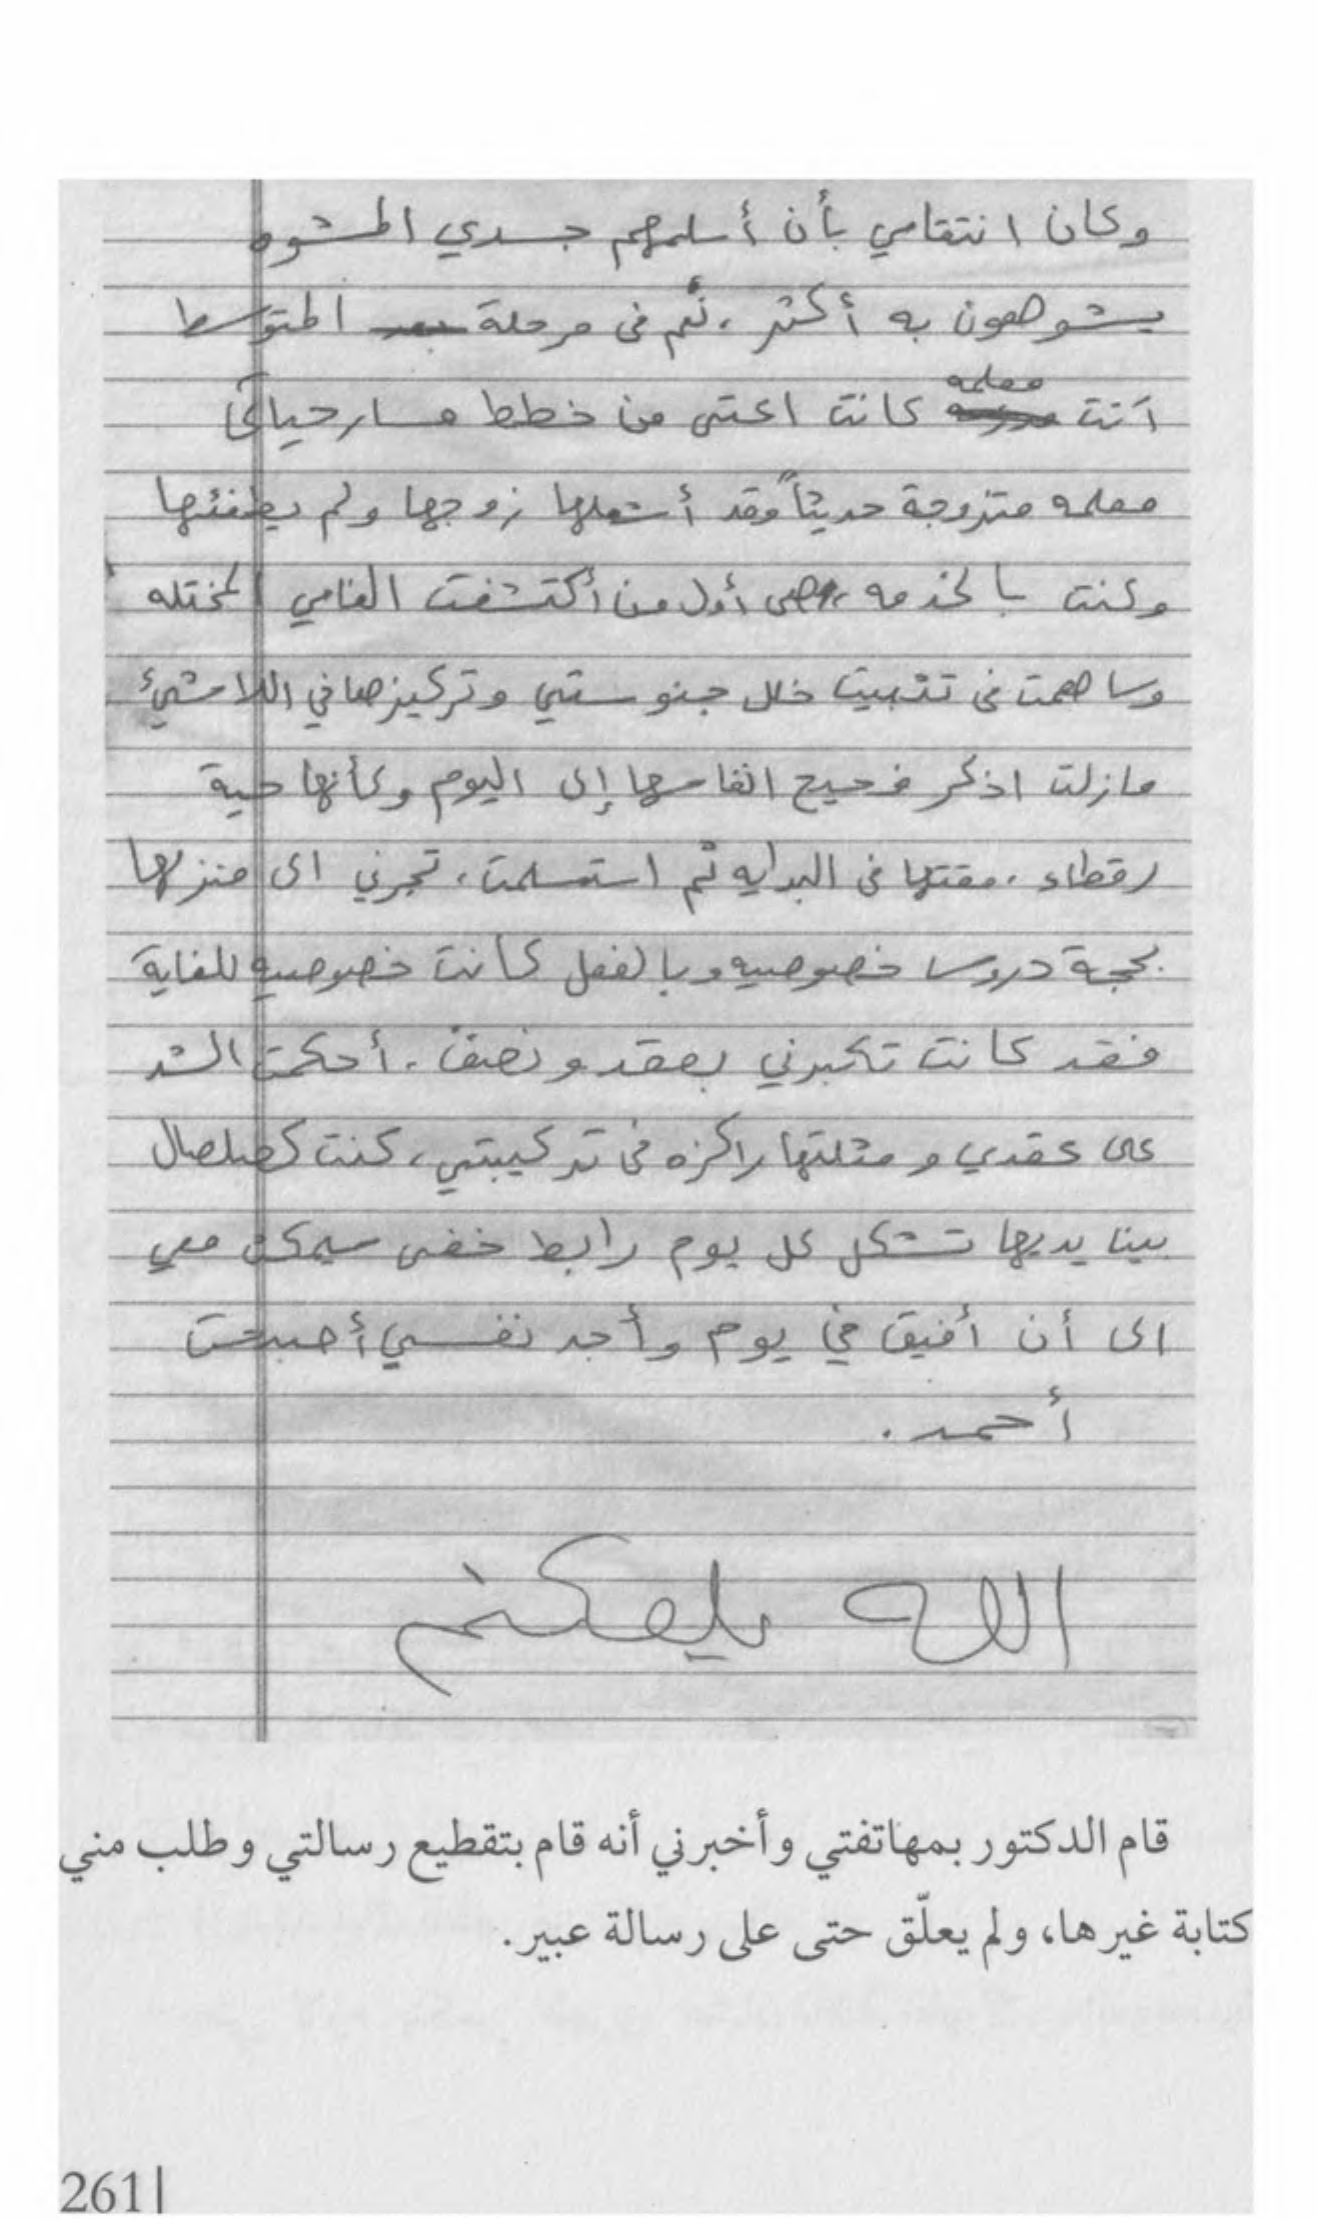 وكان انتقامي بأن أسلمهم جسدي المشوه
يشوهون به أكثر ، ثم في مرحلة المتوسط
أتت معلمه كانت اعتى من خطط مسار حياتي
معلمه متزوجة حديثاً وقد أشعلها زوجها ولم يطفئها
وكنت بالخدمه ، هي أول من أكتشفت الغامي المختله
وساهمت في تثبيت خلل جنوستي وتركيزها في اللاشيئ
مازلت اذكر فحيح انفاسها إلى اليوم وكأنها حية
رقطاء ، مقتها في البدايه ثم استسلمت ، تجرني الى منزلها
بحجة دروس خصوصيه وبالفعل كانت خصوصيه للغاية
فقد كانت تكبرني بعقد ونصف ، أحكمت الشد
على عقدي ومثلتها راكزه في تركيبتي ، كنت كصلصال
بينا يديها تشكل كل يوم رابط خفي سيمكث معي
الى أن أفيق في يوم وأجد نفسي أصبحت
أحمد .
الله يلعنكم
قام الدكتور بمهاتفتي وأخبرني أنه قام بتقطيع رسالتي وطلب مني
كتابة غيرها، ولم يعلّق حتى على رسالة عبير.
261|